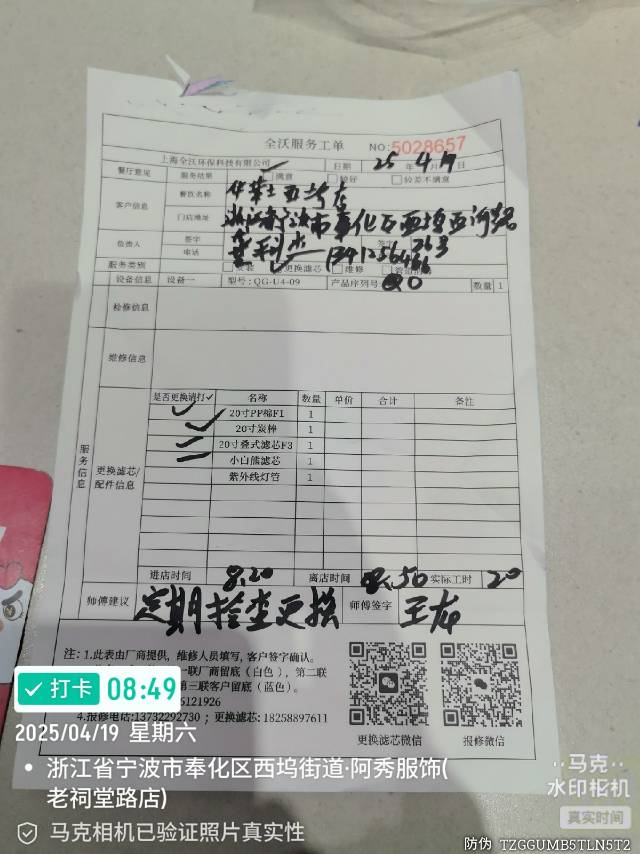 全沃服务工单 NO:5028657
上海全沃环保科技有限公司 日期 25 年 4 月 19 日
餐厅意见 服务结果 满意 较好 较差不满意
客户信息 餐饮名称
门店地址
负责人 签字
电话
服务类别 更换滤芯 维修
设备信息 设备一 型号:QG-U4-09 产品序列号 数量 1
检修信息
维修信息
服务信息
更换滤芯/配件信息
是否更换请打✓ 名称 数量 单价 合计 备注
✓ 20寸PP棉F1 1
✓ 20寸炭棒 1
20寸叠式滤芯F3 1
小白熊滤芯 1
紫外线灯管 1
进店时间 8.20 离店时间 8.50 实际工时 20
师傅建议 定期检查更换 师傅签字 王存
注: 1.此表由厂商提供，维修人员填写, 客户签字确认。
一联厂商留底（白色），第二联
第三联客户留底（蓝色）。
6121926
4.报修电话:13732292730 ; 更换滤芯: 18258897611
更换滤芯微信 报修微信
打卡 08:49
2025/04/19 星期六
浙江省宁波市奉化区西坞街道·阿秀服饰(
老祠堂路店)
马克相机已验证照片真实性
马克
水印相机
真实时间
防伪 TZGGUMB5TLN5T2